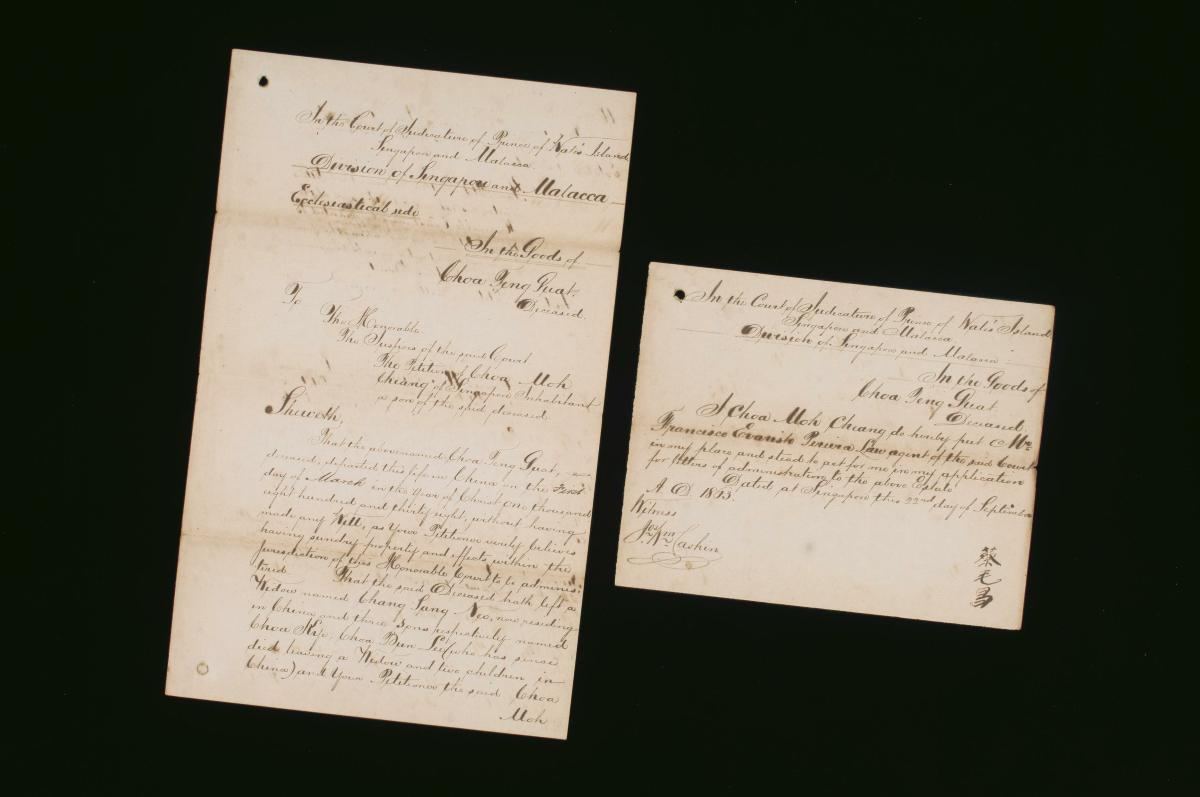 In the Court of Judicature of Prince of Wales Island
Singapore and Malacca.
Division of Singapore and Malacca
Ecclesiastical side
In the Goods of
Choa Teng Guat
Deceased.
To
The Honorable
The Judges of the said Court
The Petition of Choa Moh
Chiang of Singapore Inhabitant
a son of the said deceased
Sheweth,
That the abovenamed Choa Teng Guat,
deceased, departed this life in China on the First
day of March in the Year of Christ one thousand
eight hundred and thirty eight, without having
made any Will, as Your Petitioner verily believes
having sundry property and effects within the
Jurisdiction of this Honorable Court to be adminis-
tered That the said Deceased hath left a
Widow named Chang Neo, now residing
in China and three Sons respectively named
Choa Choa Bun (who has since
died leaving a Widow and two children in
China) and Your Petitioner the said Choa
Moh
In the Court of Judicature of Prince of Wales Island
Singapore and Malacca
Division of Singapore and Malacca
In the Goods of
Choa Teng Guat
Deceased.
I Choa Moh Chiang do hereby put Mr
Francisco Evaristo Pereira Law agent of the said Court
in my place and stead to act for me in my application
for letters of administration to the above Estate
Dated at Singapore this 22nd day of September
A D 1853
Witness
Jos Wm Cashin
蔡